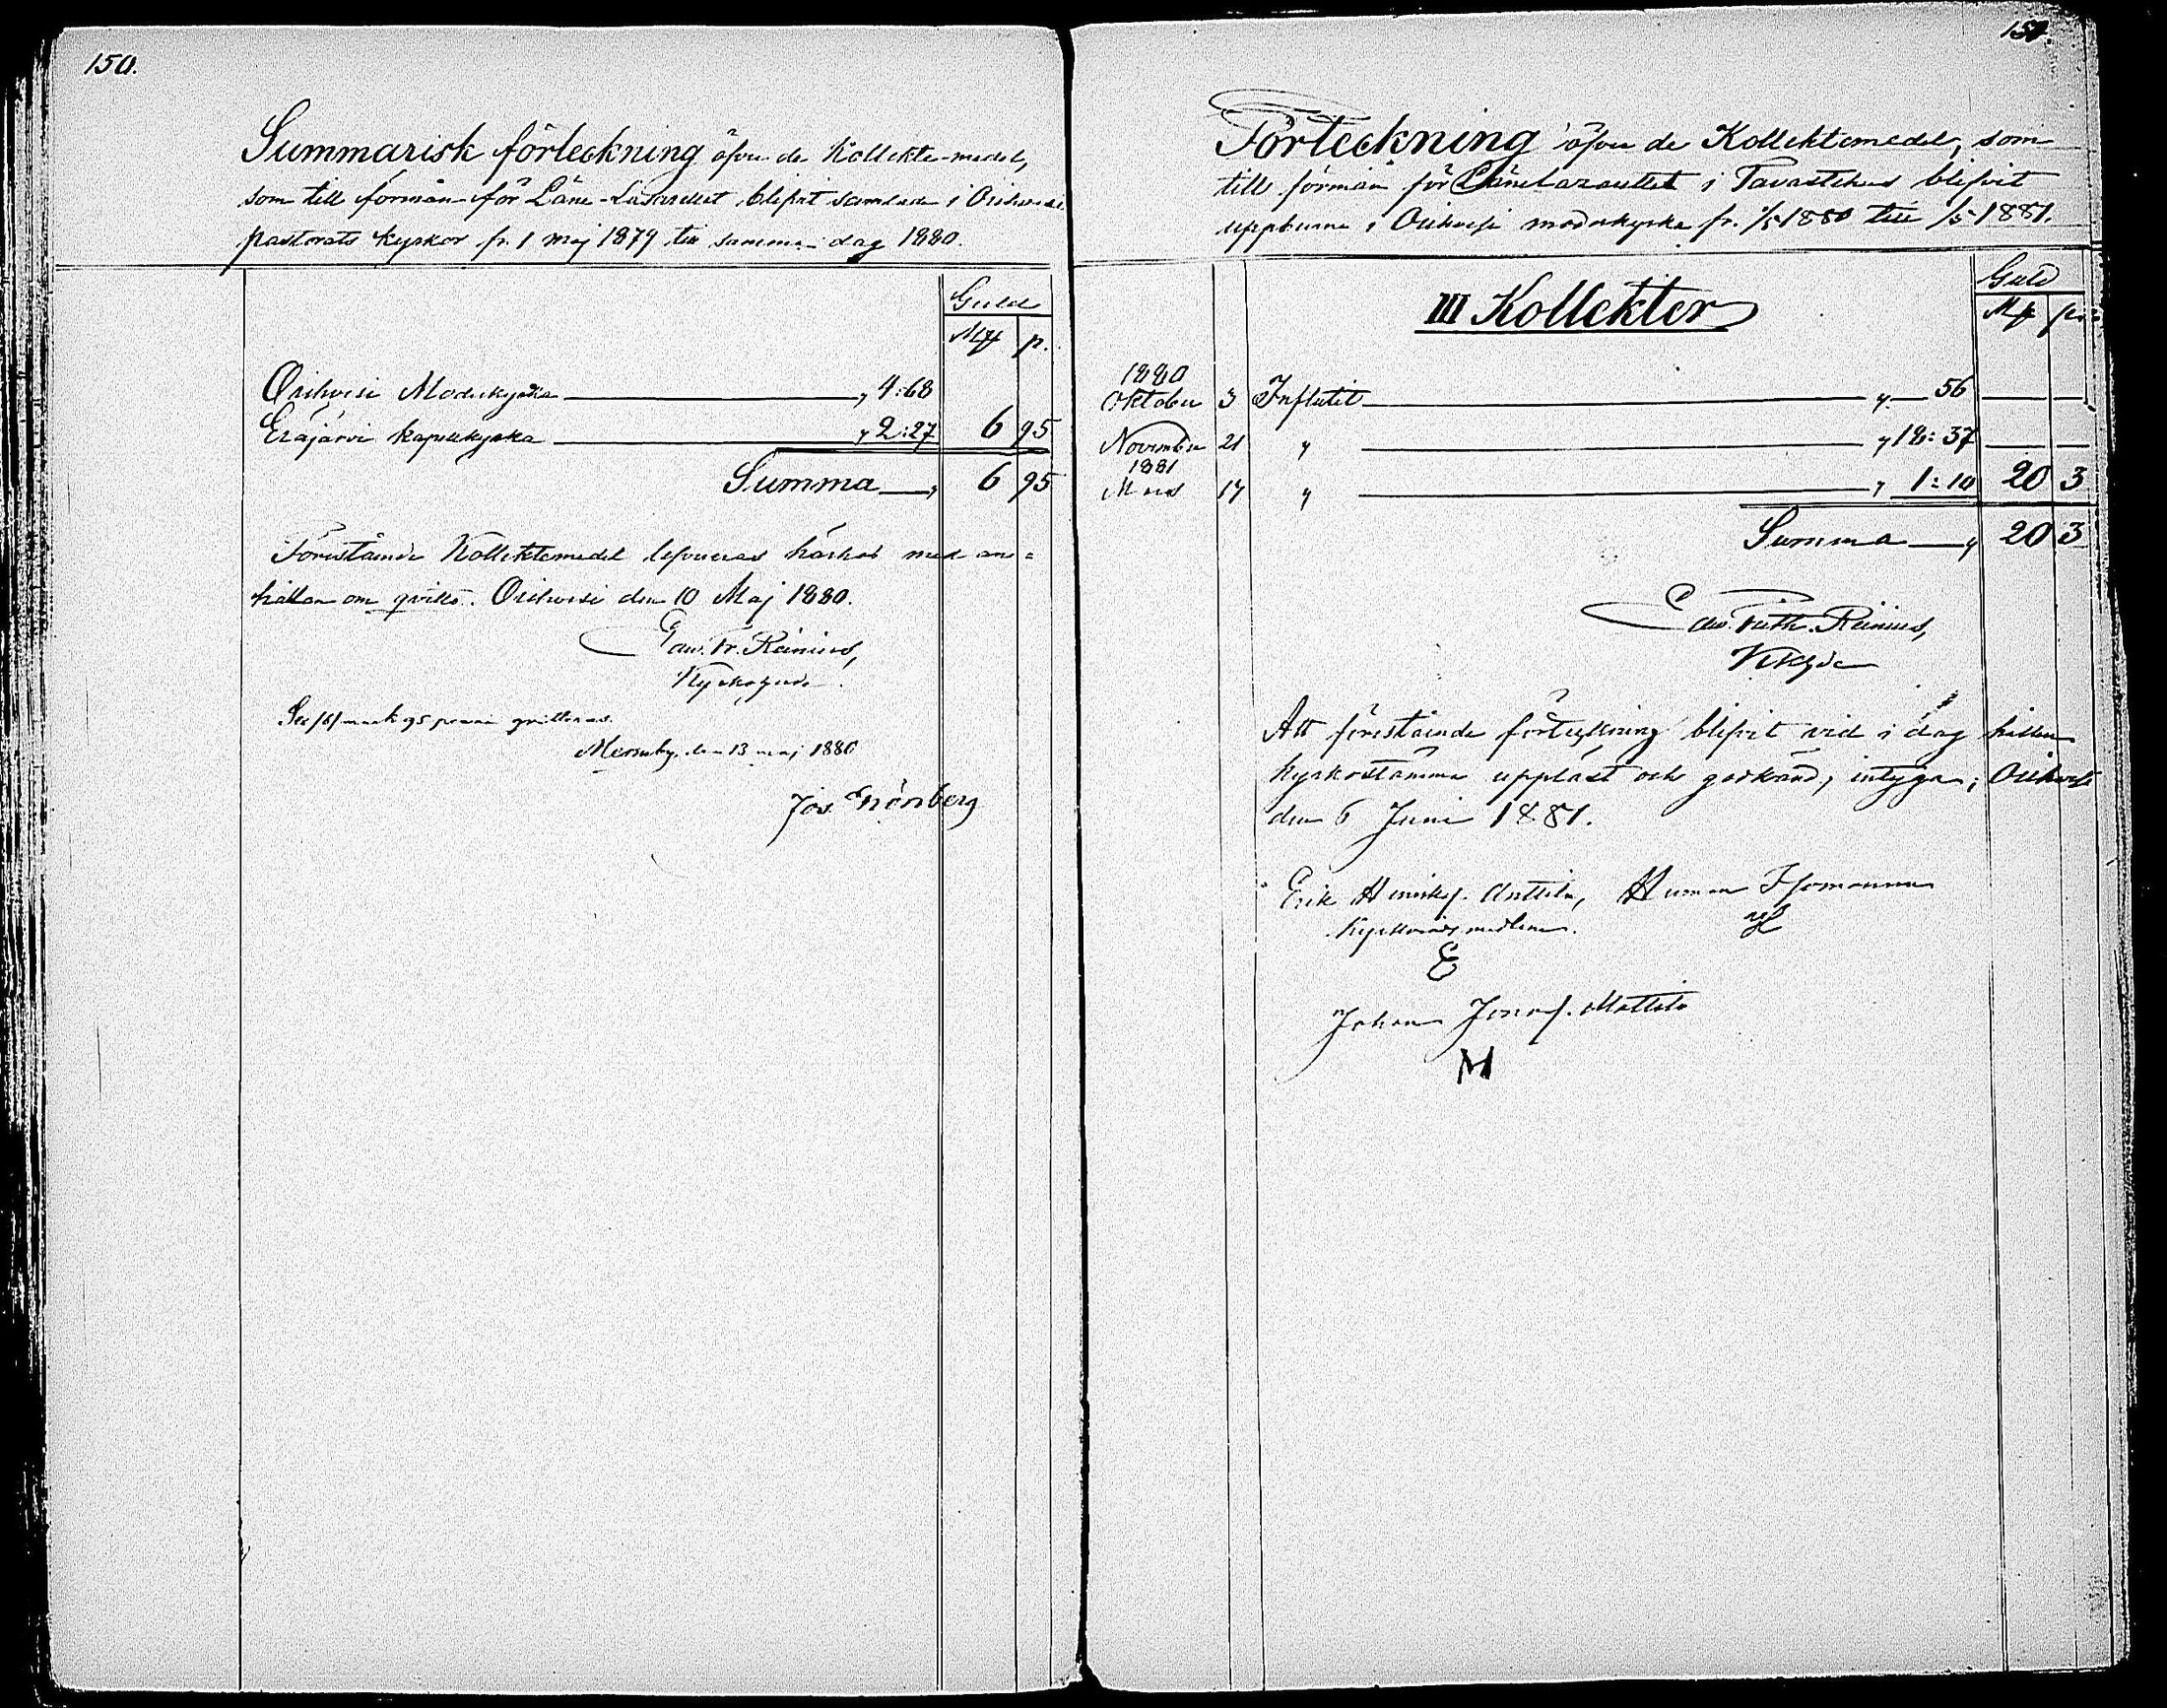 150.
Summarisk förteckning öfver de Kollekte-medel,
som till förmån för Läne-Lasarettet blifvit samlade i Orihvesi
pastorats kyrkor fr. 1 maj 1879 till samma dag 1880.
Guld
Mk p.
Orihvesi Moderkyrka „ 4:68
Eräjärvi kapellkyrka „ 2:27 6 95
Summa „ 6 95
Förestående Kollektemedel lefvereras härhos med an=
hållan om qvitto. Orihvesi den 10 Maj 1880.
Edw. Fr. Reinius,
Kyrkoherde.
Sex /6/ mark 95 penni qvitteras.
den 13 maj 1880
Jos. Grönberg
151.
Förteckning öfver de Kollektemedel, som
till förmån för Länelazarettet i Tavastehus blifvit
uppburne i Orihvesi moderkyrka fr. 1/5 1880 till 1/5 1881.
III Kollekter
Guld
Mk p.
1880
Oktober 3 Influtit „ 56
November 21 „ „ 18:37
1881
Mars 17 „ „ 1:10 20 3
Summa „ 20 3
Edw. Frith. Reinius,
Kkhde
Att förestående förteckning blifvit vid i dag hållen
kyrkostämma uppläst och godkänd, intyga; Orihvesi
den 6 Juni 1881.
Erik Henriksf. Anttila, Herman
Kyrkorådsmedlem.
E
Johan Josefsf. Mattila
M